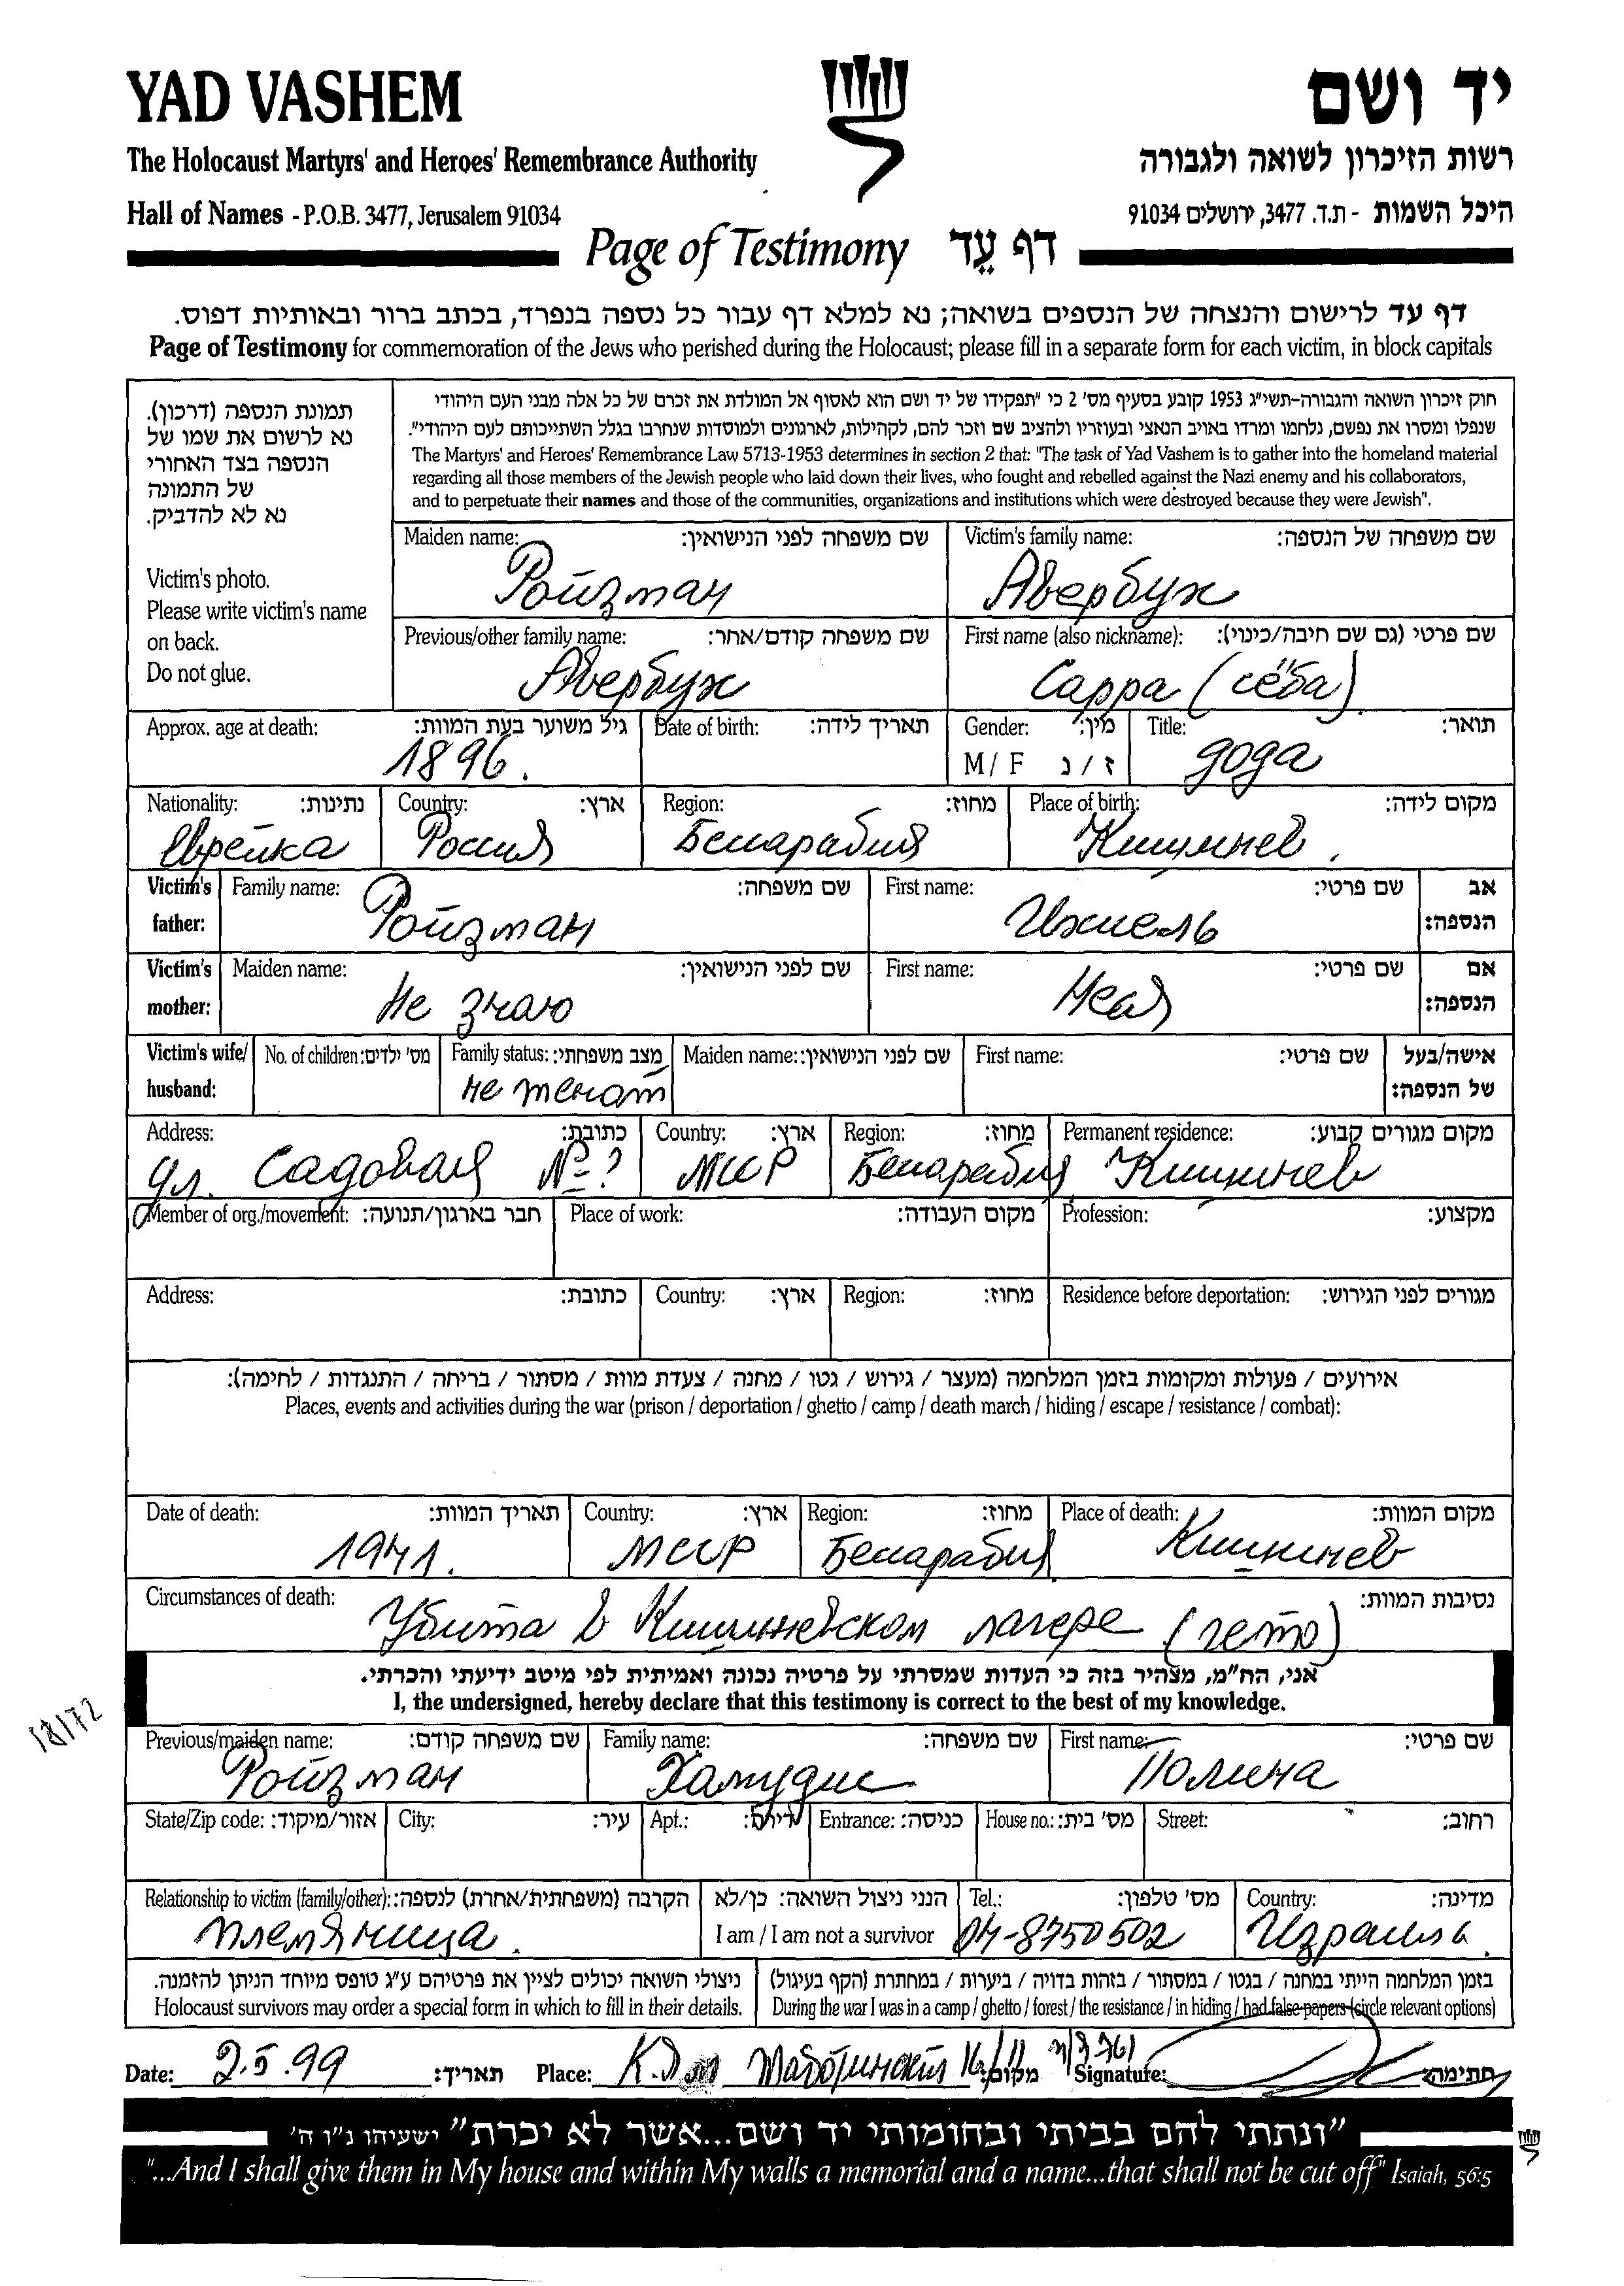 YAD VASHEM
יד ושם
The Holocaust Martyrs' and Heroes' Remembrance Authority
רשות הזיכרון לשואה ולגבורה
Hall of Names - P.O.B. 3477, Jerusalem 91034
היכל השמות - ת.ד. 3477, ירושלים 91034
Page of Testimony דף עֵד
דף עד לרישום והנצחה של הנספים בשואה; נא למלא דף עבור כל נספה בנפרד, בכתב ברור ובאותיות דפוס.
Page of Testimony for commemoration of the Jews who perished during the Holocaust; please fill in a separate form for each victim, in block capitals
תמונת הנספה (דרכון).
נא לרשום את שמו של
הנספה בצד האחורי
של התמונה
נא לא להדביק.
Victim's photo.
Please write victim's name
on back.
Do not glue.
חוק זיכרון השואה והגבורה-תשי"ג 1953 קובע בסעיף מס' 2 כי "תפקידו של יד ושם הוא לאסוף אל המולדת את זכרם של כל אלה מבני העם היהודי
שנפלו ומסרו את נפשם, נלחמו ומרדו באויב הנאצי ובעוזריו ולהציב שם וזכר להם, לקהילות, לארגונים ולמוסדות שנחרבו בגלל השתייכותם לעם היהודי".
The Martyrs' and Heroes' Remembrance Law 5713-1953 determines in section 2 that: "The task of Yad Vashem is to gather into the homeland material
regarding all those members of the Jewish people who laid down their lives, who fought and rebelled against the Nazi enemy and his collaborators,
and to perpetuate their names and those of the communities, organizations and institutions which were destroyed because they were Jewish".
Maiden name: שם משפחה לפני הנישואין:
Ройзман
Victim's family name: שם משפחה של הנספה:
Авербух
Previous/other family name: שם משפחה קודם/אחר:
Авербух
First name (also nickname): שם פרטי (גם שם חיבה/כינוי):
Сарра (сёба)
Approx. age at death: גיל משוער בעת המוות:
1896.
Date of birth: תאריך לידה:
Gender: מין:
M / F ז / נ
Title: תואר:
дода
Nationality: נתינות:
Еврейка
Country: ארץ:
Россия
Region: מחוז:
Бессарабия
Place of birth: מקום לידה:
Кишинев.
Victim's father:
Family name: שם משפחה:
Ройзман
First name: שם פרטי:
Ихиель
אב הנספה:
Victim's mother:
Maiden name: שם לפני הנישואין:
не знаю
First name: שם פרטי:
אם הנספה:
Victim's wife/ husband:
No. of children: מס' ילדים:
Family status: מצב משפחתי:
не женат
Maiden name: שם לפני הנישואין:
First name: שם פרטי:
אישה/בעל של הנספה:
Address: כתובת:
ул. Садовая №?
Country: ארץ:
МССР
Region: מחוז:
Бессарабия
Permanent residence: מקום מגורים קבוע:
Кишинев
Member of org./movement: חבר בארגון/תנועה:
Place of work: מקום העבודה:
Profession: מקצוע:
Address: כתובת:
Country: ארץ:
Region: מחוז:
Residence before deportation: מגורים לפני הגירוש:
אירועים / פעולות ומקומות בזמן המלחמה (מעצר / גירוש / גטו / מחנה / צעדת מוות / מסתור / בריחה / התנגדות / לחימה):
Places, events and activities during the war (prison / deportation / ghetto / camp / death march / hiding / escape / resistance / combat):
Date of death: תאריך המוות:
1941.
Country: ארץ:
МССР
Region: מחוז:
Бессарабия
Place of death: מקום המוות:
Кишинев
Circumstances of death: נסיבות המוות:
Убита в Кишиневском лагере (гетто)
אני, הח"מ, מצהיר בזה כי העדות שמסרתי על פרטיה נכונה ואמיתית לפי מיטב ידיעתי והכרתי.
I, the undersigned, hereby declare that this testimony is correct to the best of my knowledge.
18172
Previous/maiden name: שם משפחה קודם:
Ройзман
Family name: שם משפחה:
Хамудис
First name: שם פרטי:
Полина
State/Zip code: אזור/מיקוד:
City: עיר:
Apt.: דירה:
Entrance: כניסה:
House no.: מס' בית:
Street: רחוב:
Relationship to victim (family/other): הקרבה (משפחתית/אחרת) לנספה:
племяница.
הנני ניצול השואה: כן/לא
I am / I am not a survivor
Tel.: מס' טלפון:
04-8750502
Country: מדינה:
Израиль.
ניצולי השואה יכולים לציין את פרטיהם ע"ג טופס מיוחד הניתן להזמנה.
Holocaust survivors may order a special form in which to fill in their details.
בזמן המלחמה הייתי במחנה / בגטו / במסתור / בזהות בדויה / ביערות / במחתרת (הקף בעיגול)
During the war I was in a camp / ghetto / forest / the resistance / in hiding / had false papers (circle relevant options)
Date: 2.5.99 תאריך:
Place: К. Жаботинский 16/11 מקום:
Signature: חתימה:
"ונתתי להם בביתי ובחומותי יד ושם...אשר לא יכרת" ישעיהו נ"ו ה'
"...And I shall give them in My house and within My walls a memorial and a name...that shall not be cut off" Isaiah, 56:5